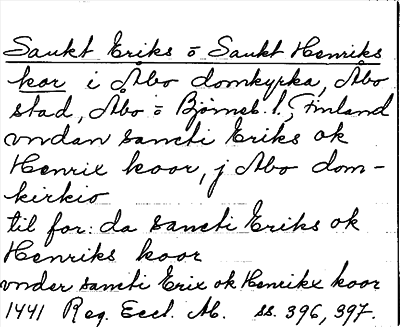 Sankt Eriks o Sankt Henriks
kor i Åbo domkyrka, Åbo
stad, Åbo o Björneb. l., Finland
vndan sancti Eriks ok
Henrix koor, j Abo dom-
kirkio
til for: da sancti Eriks ok
Henriks koor
vnder sancti Erix ok Henrikx koor
1441 Reg. Eccl. Ab. ss. 396, 397.